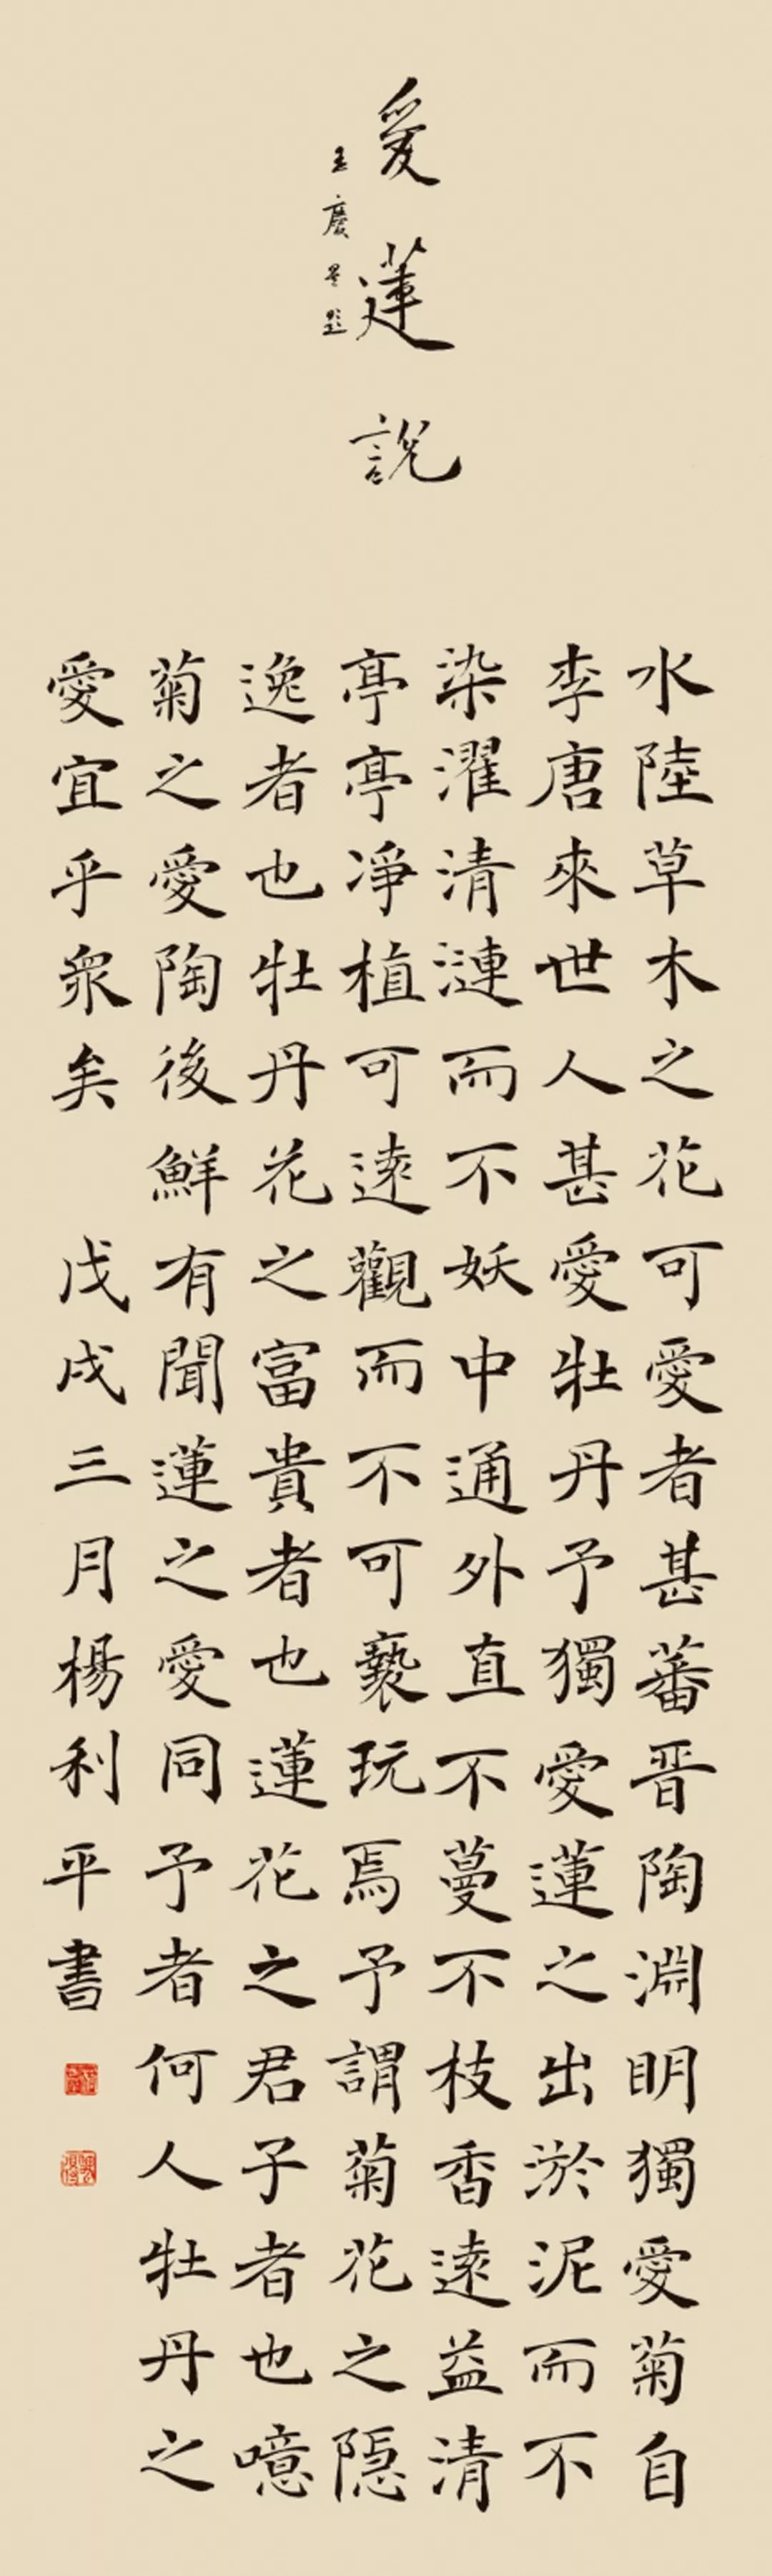 愛蓮說
慶星題
水陸草木之花可愛者甚蕃晋陶淵明獨愛菊自
李唐來世人甚愛牡丹予獨愛蓮之出淤泥而不
染濯清漣而不妖中通外直不蔓不枝香遠益清
亭亭凈植可遠觀而不可褻玩焉予謂菊花之隱
逸者也牡丹花之富貴者也蓮花之君子者也噫
菊之愛陶後鮮有聞蓮之愛同予者何人牡丹之
愛宜乎衆矣 戊戌三月楊利平書